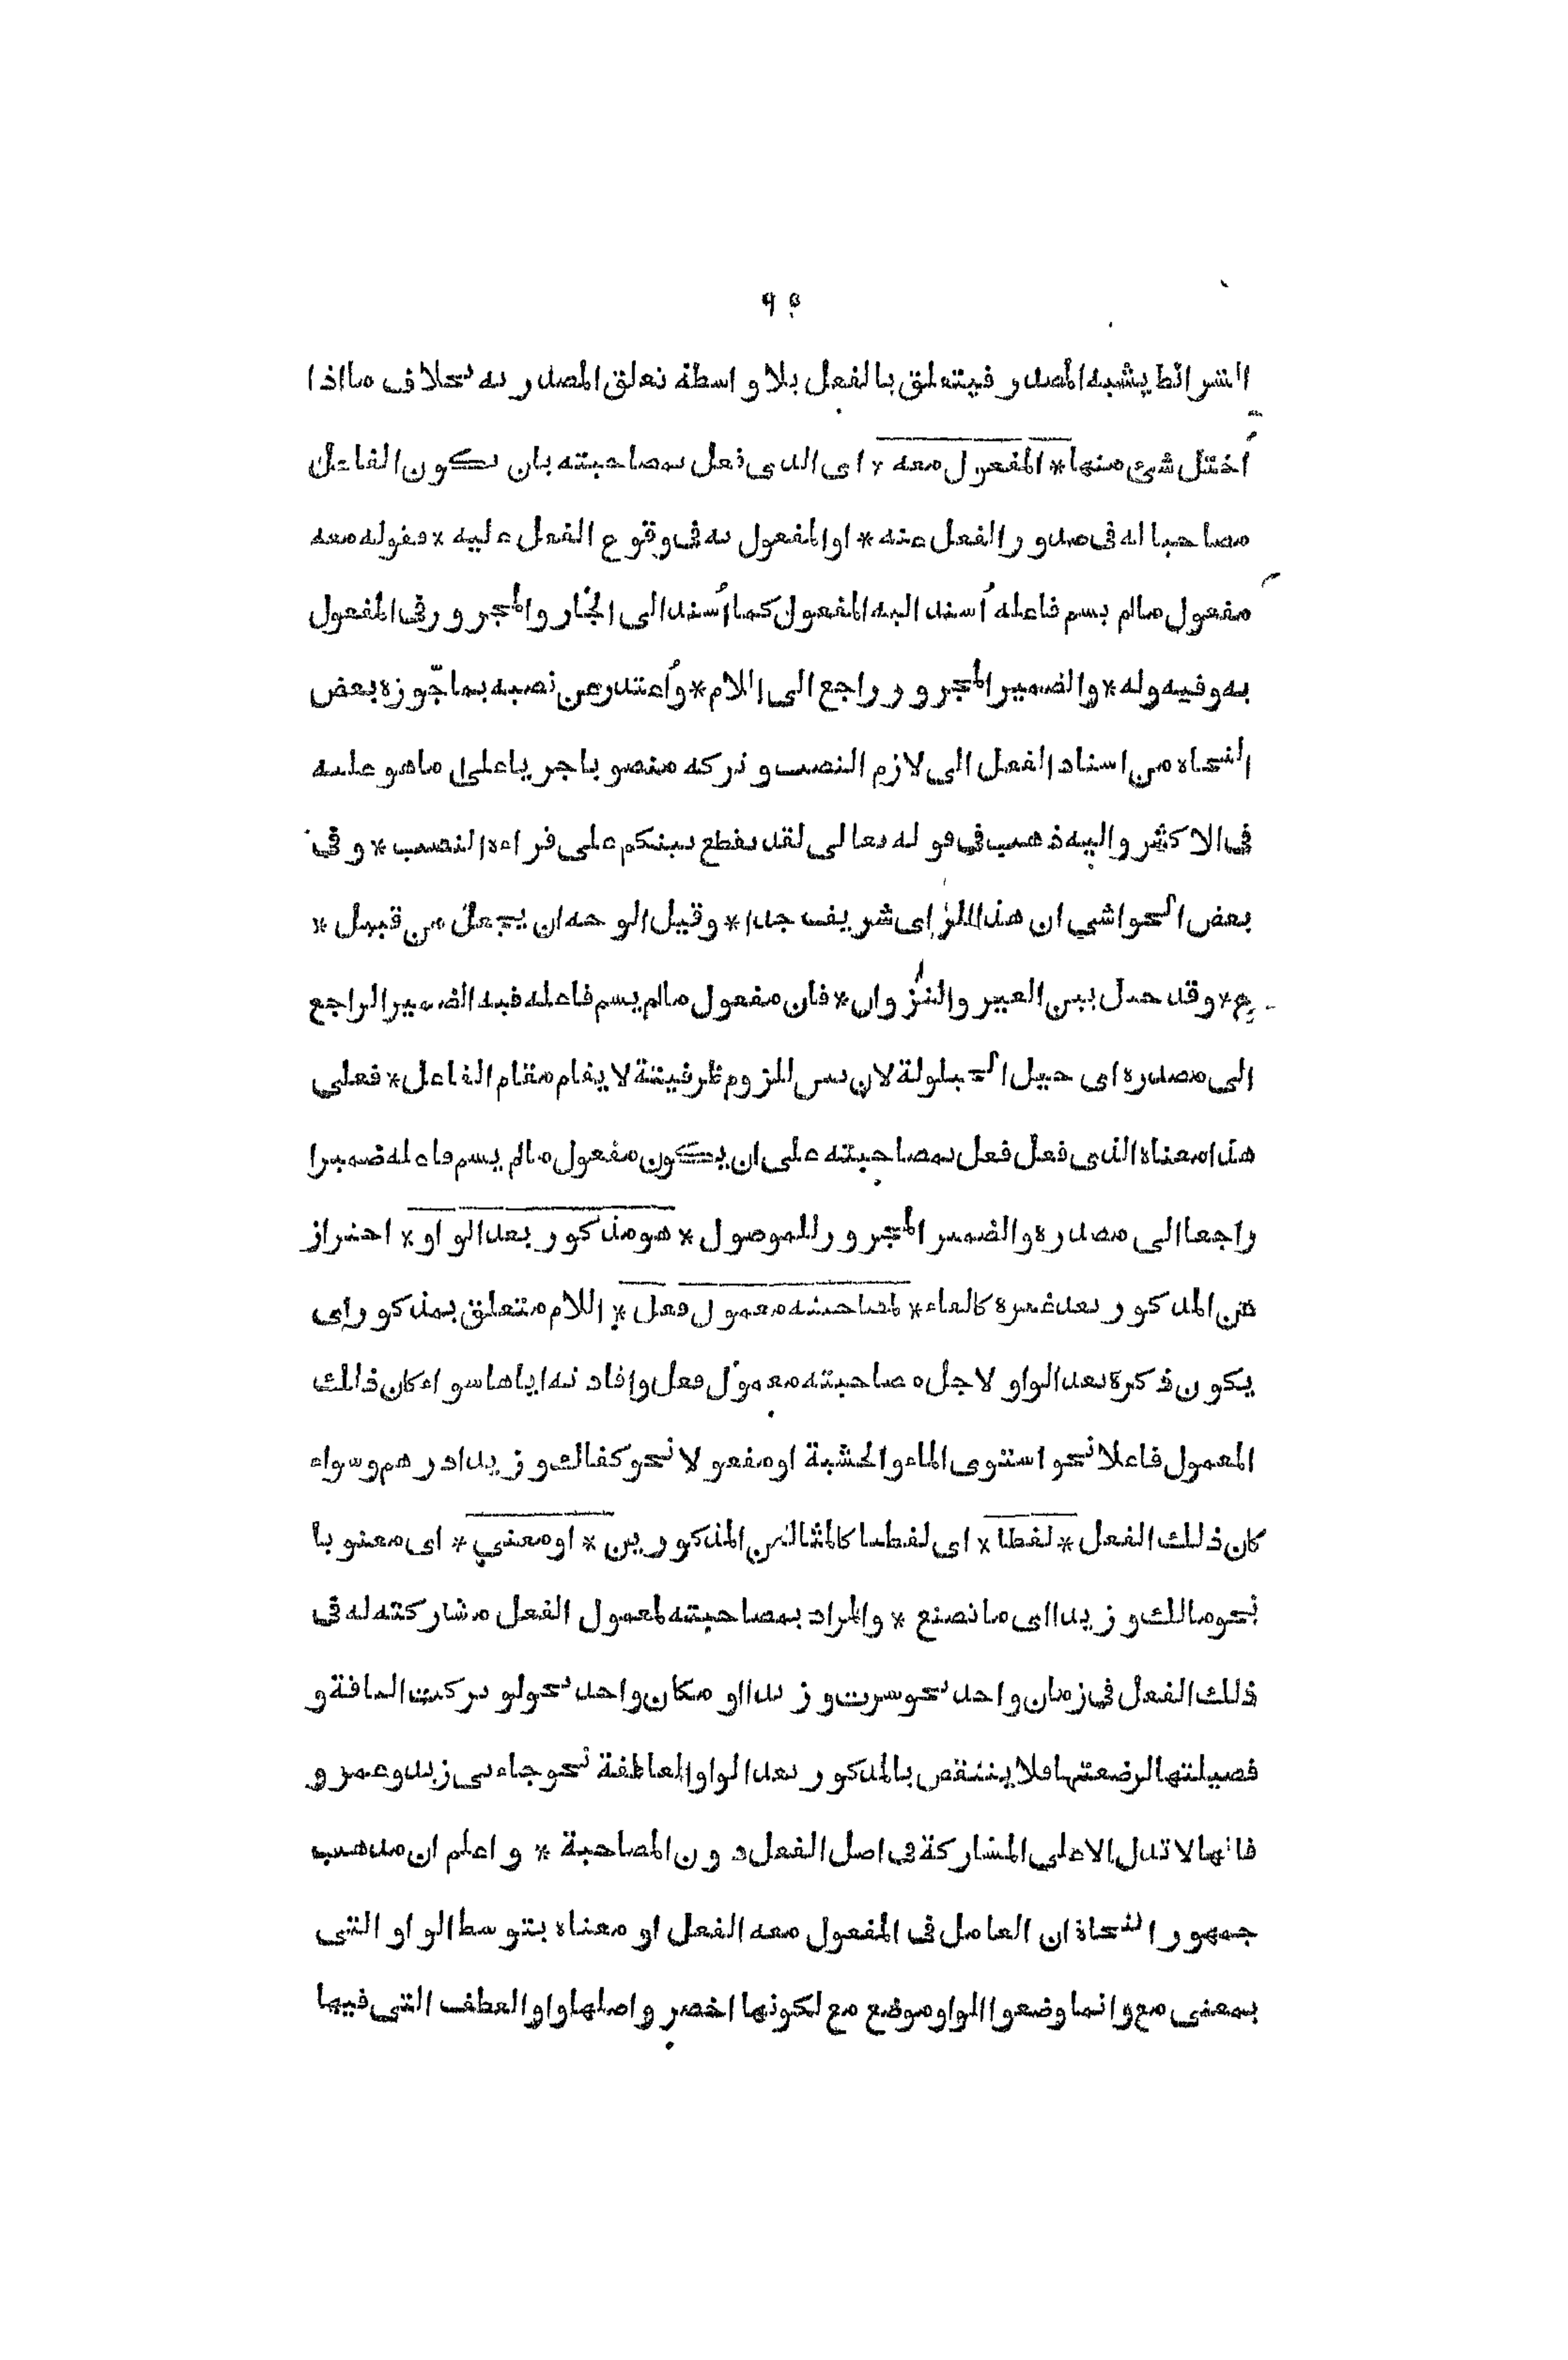 ٩٥
الشرائط يشبه المصدر فيتعلق بالفعل بلا واسطة تعلق المصدر به بخلاف ما اذا
اختل شئ منها * المفعول معه * اى الذى فعل بمصاحبته بان يكون الفاعل
مصاحبا له فى صدور الفعل عنه * او المفعول به فى وقوع الفعل عليه * فقوله معه
مفعول مالم يسم فاعله أسند اليه المفعول كما أسند الى الجار والمجرور فى المفعول
به وفيه وله * والضمير المجرور راجع الى اللام * وأعتذر عن نصبه بما جّوزه بعض
النحاه من اسناد الفعل الى لازم النصب وتركه منصوبا جريا على ما هو عليه
فى الاكثر واليه ذهب فى قوله تعالى لقد تقطع بينكم على قراءه النصب * وفى
بعض الحواشي ان هذا الراى شريف جدا * وقيل الوجه ان يجعل من قبيل *
ع * وقد حيل بين العير والنزوان * فان مفعول مالم يسم فاعله فيه الضمير الراجع
الى مصدره اى حيل الحيلولة لان بين للزوم ظرفيتة لا يقام مقام الفاعل * فعلى
هذا معناه الذى فعل فعل بمصاحبته على ان يكون مفعول مالم يسم فاعله ضميرا
راجعا الى مصدره والضمير المجرور للموصول * هو مذكور بعد الواو * احتراز
عن المذكور بعد غيره كالفاء * لمصاحبته معمول فعل * اللام متعلق بمذكور اى
يكون ذكره بعد الواو لاجل مصاحبته معمول فعل وافادته اياها سواء كان ذلك
المعمول فاعلا نحو استوى الماء والخشبة او مفعولا نحو كفاك وزيدا درهم وسواء
كان ذلك الفعل * لفظا * اى لفظيا كالمثالين المذكورين * او معني * اى معنويا
نحو مالك وزيدا اى ما تصنع * والمراد بمصاحبته لمعمول الفعل مشاركته له فى
ذلك الفعل فى زمان واحد نحو سرت وزيدا او مكان واحد نحو لو تركت الناقة و
فصيلتها لرضعتها فلا ينتقض بالمذكور بعد الواو العاطفة نحو جاءنى زيد وعمرو
فانها لا تدل الا على المشاركة فى اصل الفعل دون المصاحبة * واعلم ان مذهب
جمهور النحاة ان العامل فى المفعول معه الفعل او معناه بتوسط الواو التى
بمعنى مع وانما وضعوا الواو موضع مع لكونها اخصر واصلها واو العطف التى فيها